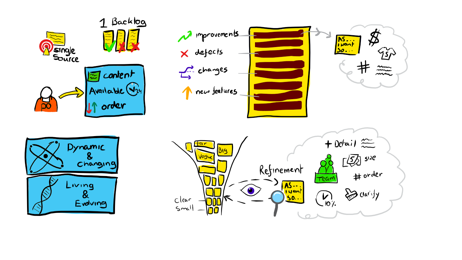 1 Backlog
Single
Source
content
Available
order
improvements
defects
changes
new features
AS...
I want
so...
$
#
Dynamic
&
Changing
Living
&
Evolving
Big
Clear
Small
Refinement
AS...
I want
so...
+ Detail
size
TEAM
# order
10%
clarify